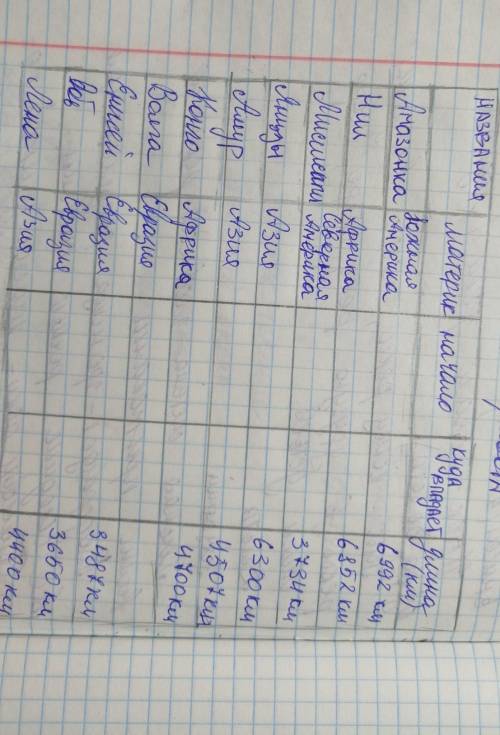 НАЗВАНИЯ материк начало куда впадает длина (км)
Амазонка Южная Америка 6992 км
Нил Африка 6852 км
Миссисипи Северная Америка 3734 км
Янцзы Азия 6300 км
Амур Азия
Конго Африка 4700 км
Волга Евразия
Енисей Евразия 3487 км
Обь Евразия 3650 км
Лена Азия 4400 км